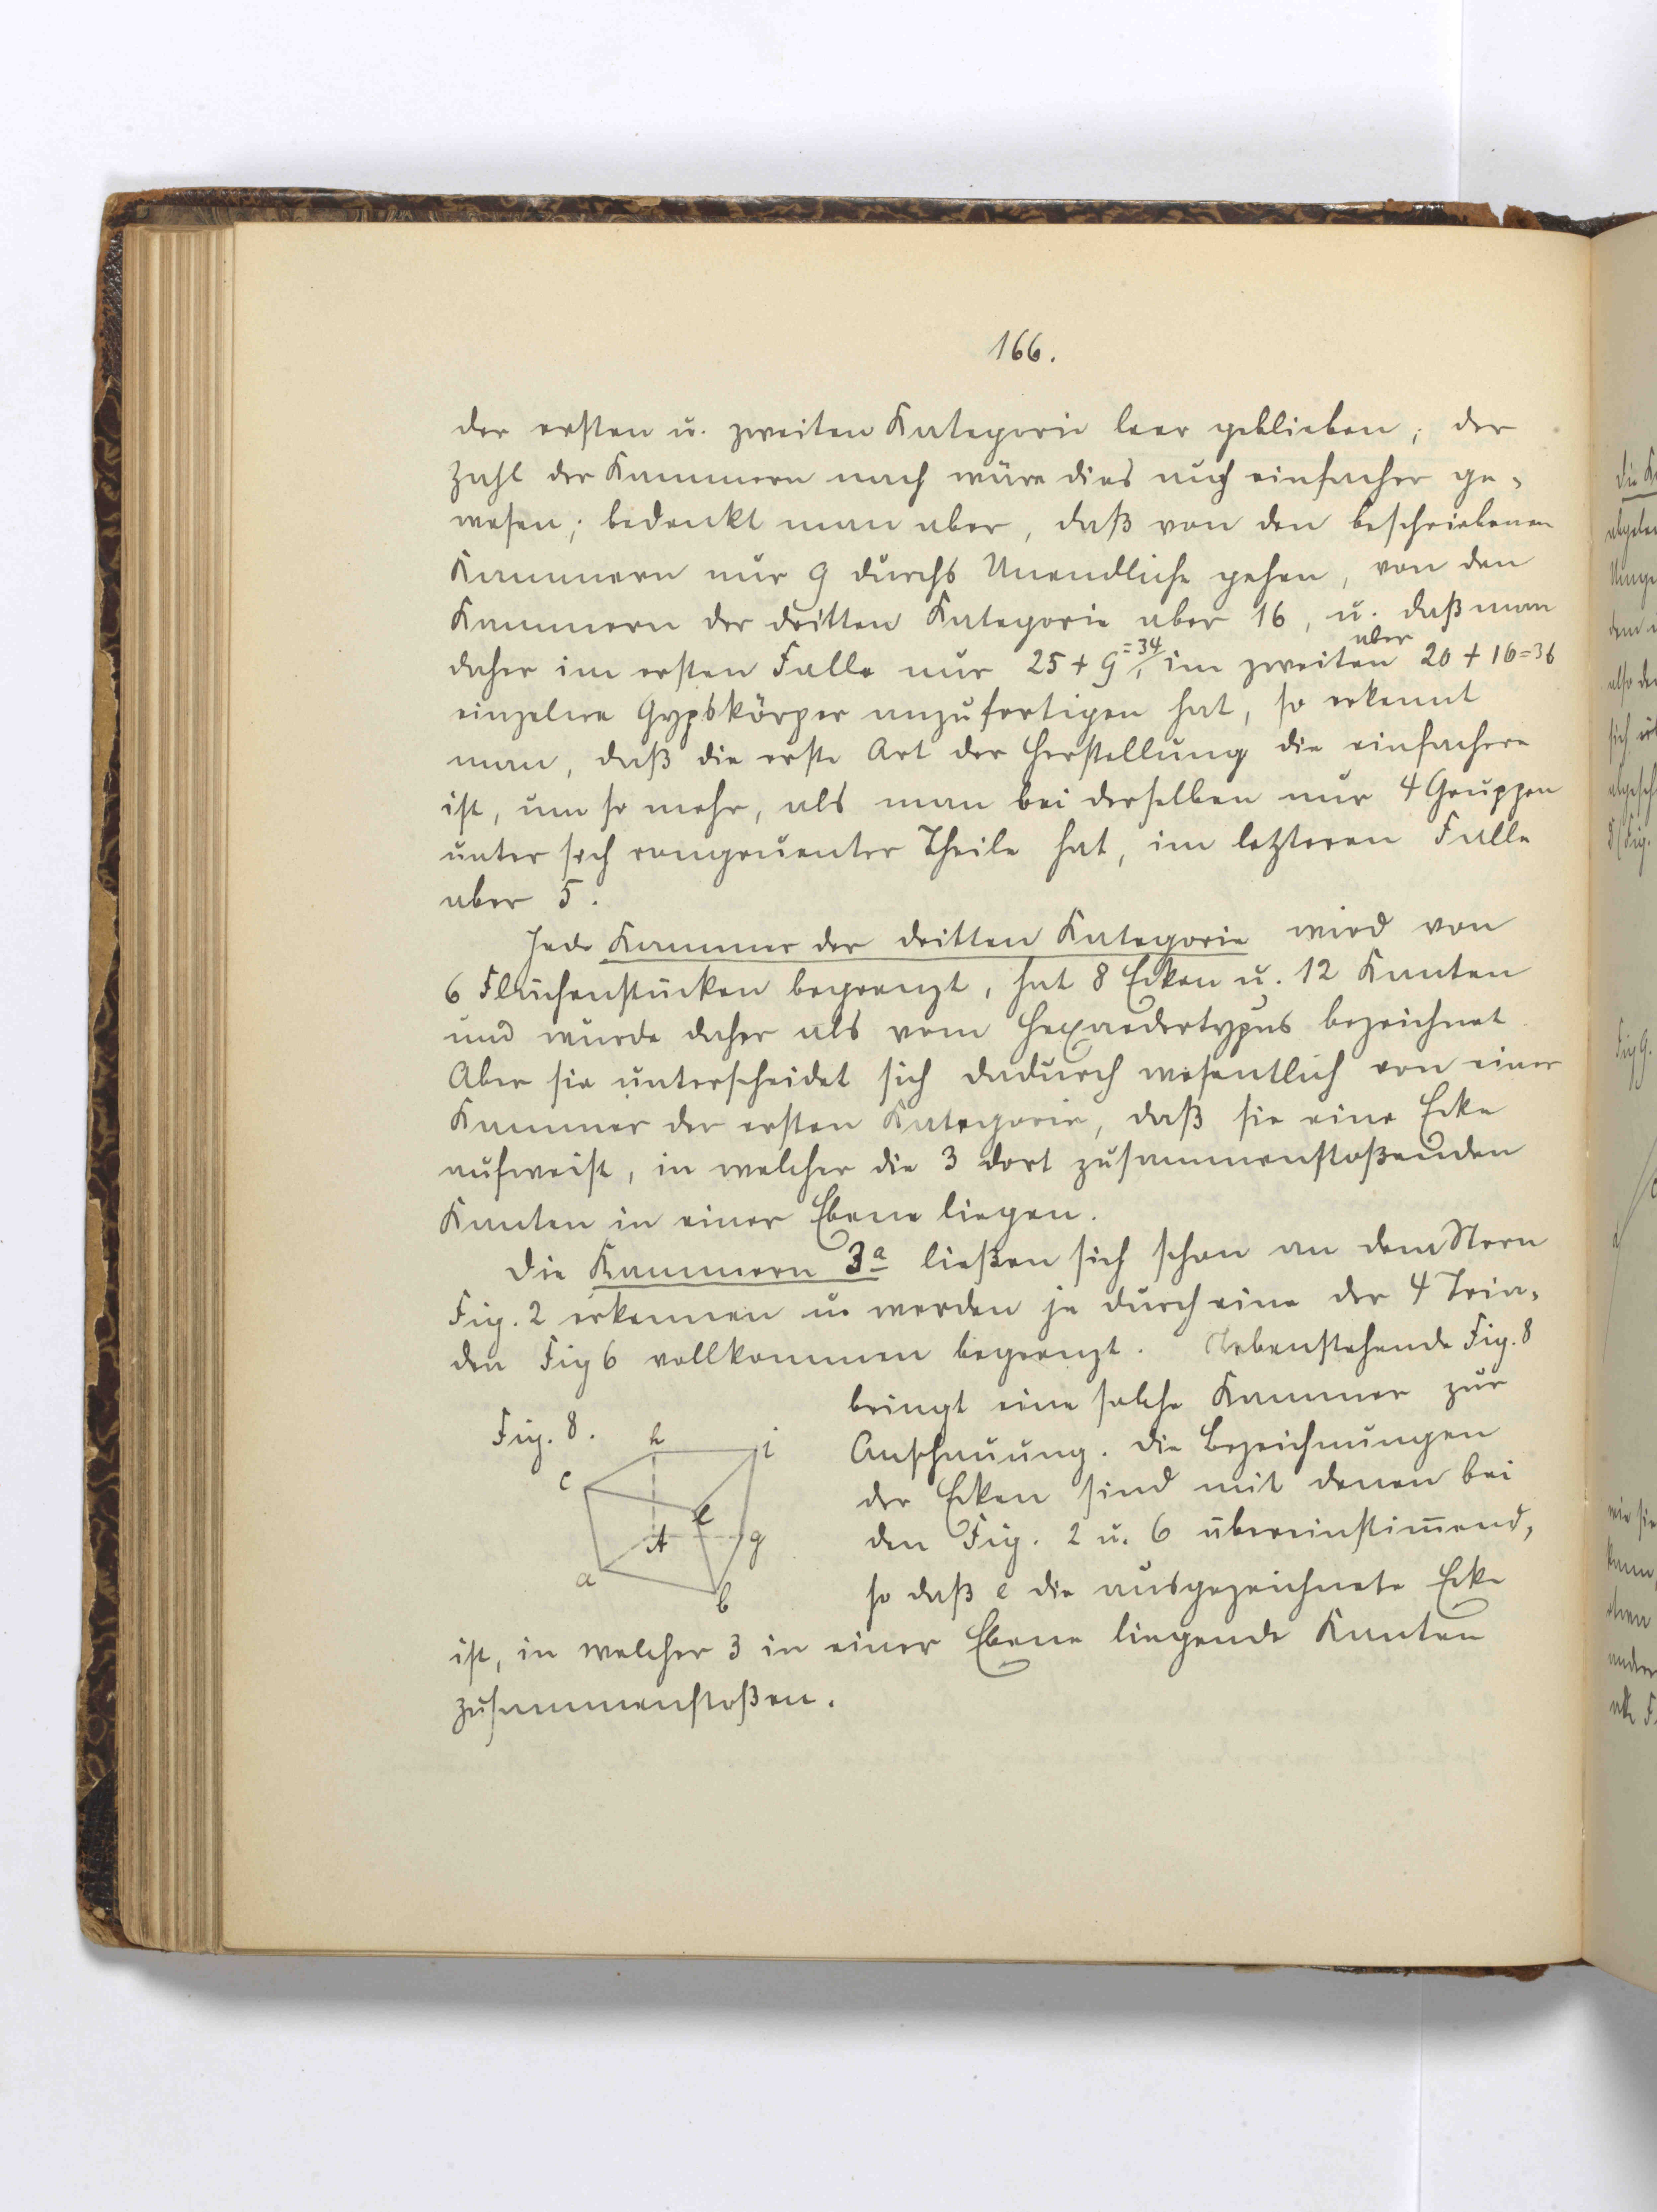 166.
der ersten u. zweiten Kategorie leer geblieben; der
Zahl der Kammern nach wäre dies auch einfacher ge-
wesen; bedenkt man aber, daß von den beschriebenen
Kammern nur 9 durchs Unendliche gehen, von den
Kammern der dritten Kategorie aber 16, u. daß man
daher im ersten Falle nur 25 + 9 = 34, im zweiten aber 20 + 16 = 36
einzelne Gypskörper anzufertigen hat, so erkennt
man, daß die erste Art der Herstellung die einfachere
ist, um so mehr, als man bei derselben nur 4 Gruppen
unter sich congruenter Theile hat, im letzteren Falle
aber 5.
Jede Kammer der dritten Kategorie wird von
6 Flächenstücken begrenzt, hat 8 Ecken u. 12 Kanten
und wurde daher als vom Hexaedertypus bezeichnet
Aber sie unterscheidet sich dadurch wesentlich von einer
Kammer der ersten Kategorie, daß sie eine Ecke
aufweist, in welcher die 3 dort zusammenstoßenden
Kanten in einer Ebene liegen.
Die Kammern 3a ließen sich schon an dem Stern
Fig. 2 erkennen u. werden je durch eine der 4 Tria-
den Fig 6 vollkommen begrenzt. Nebenstehende Fig. 8
bringt eine solche Kammer zur
Anschauung. Die Bezeichnungen
der Ecken sind mit denen bei
den Fig. 2 u. 6 übereinstim̅end,
so daß e die ausgezeichnete Ecke
ist, in welcher 3 in einer Ebene liegende Kanten
zusammenstoßen.
Fig. 8.
h
i
c
e
A
g
a
b